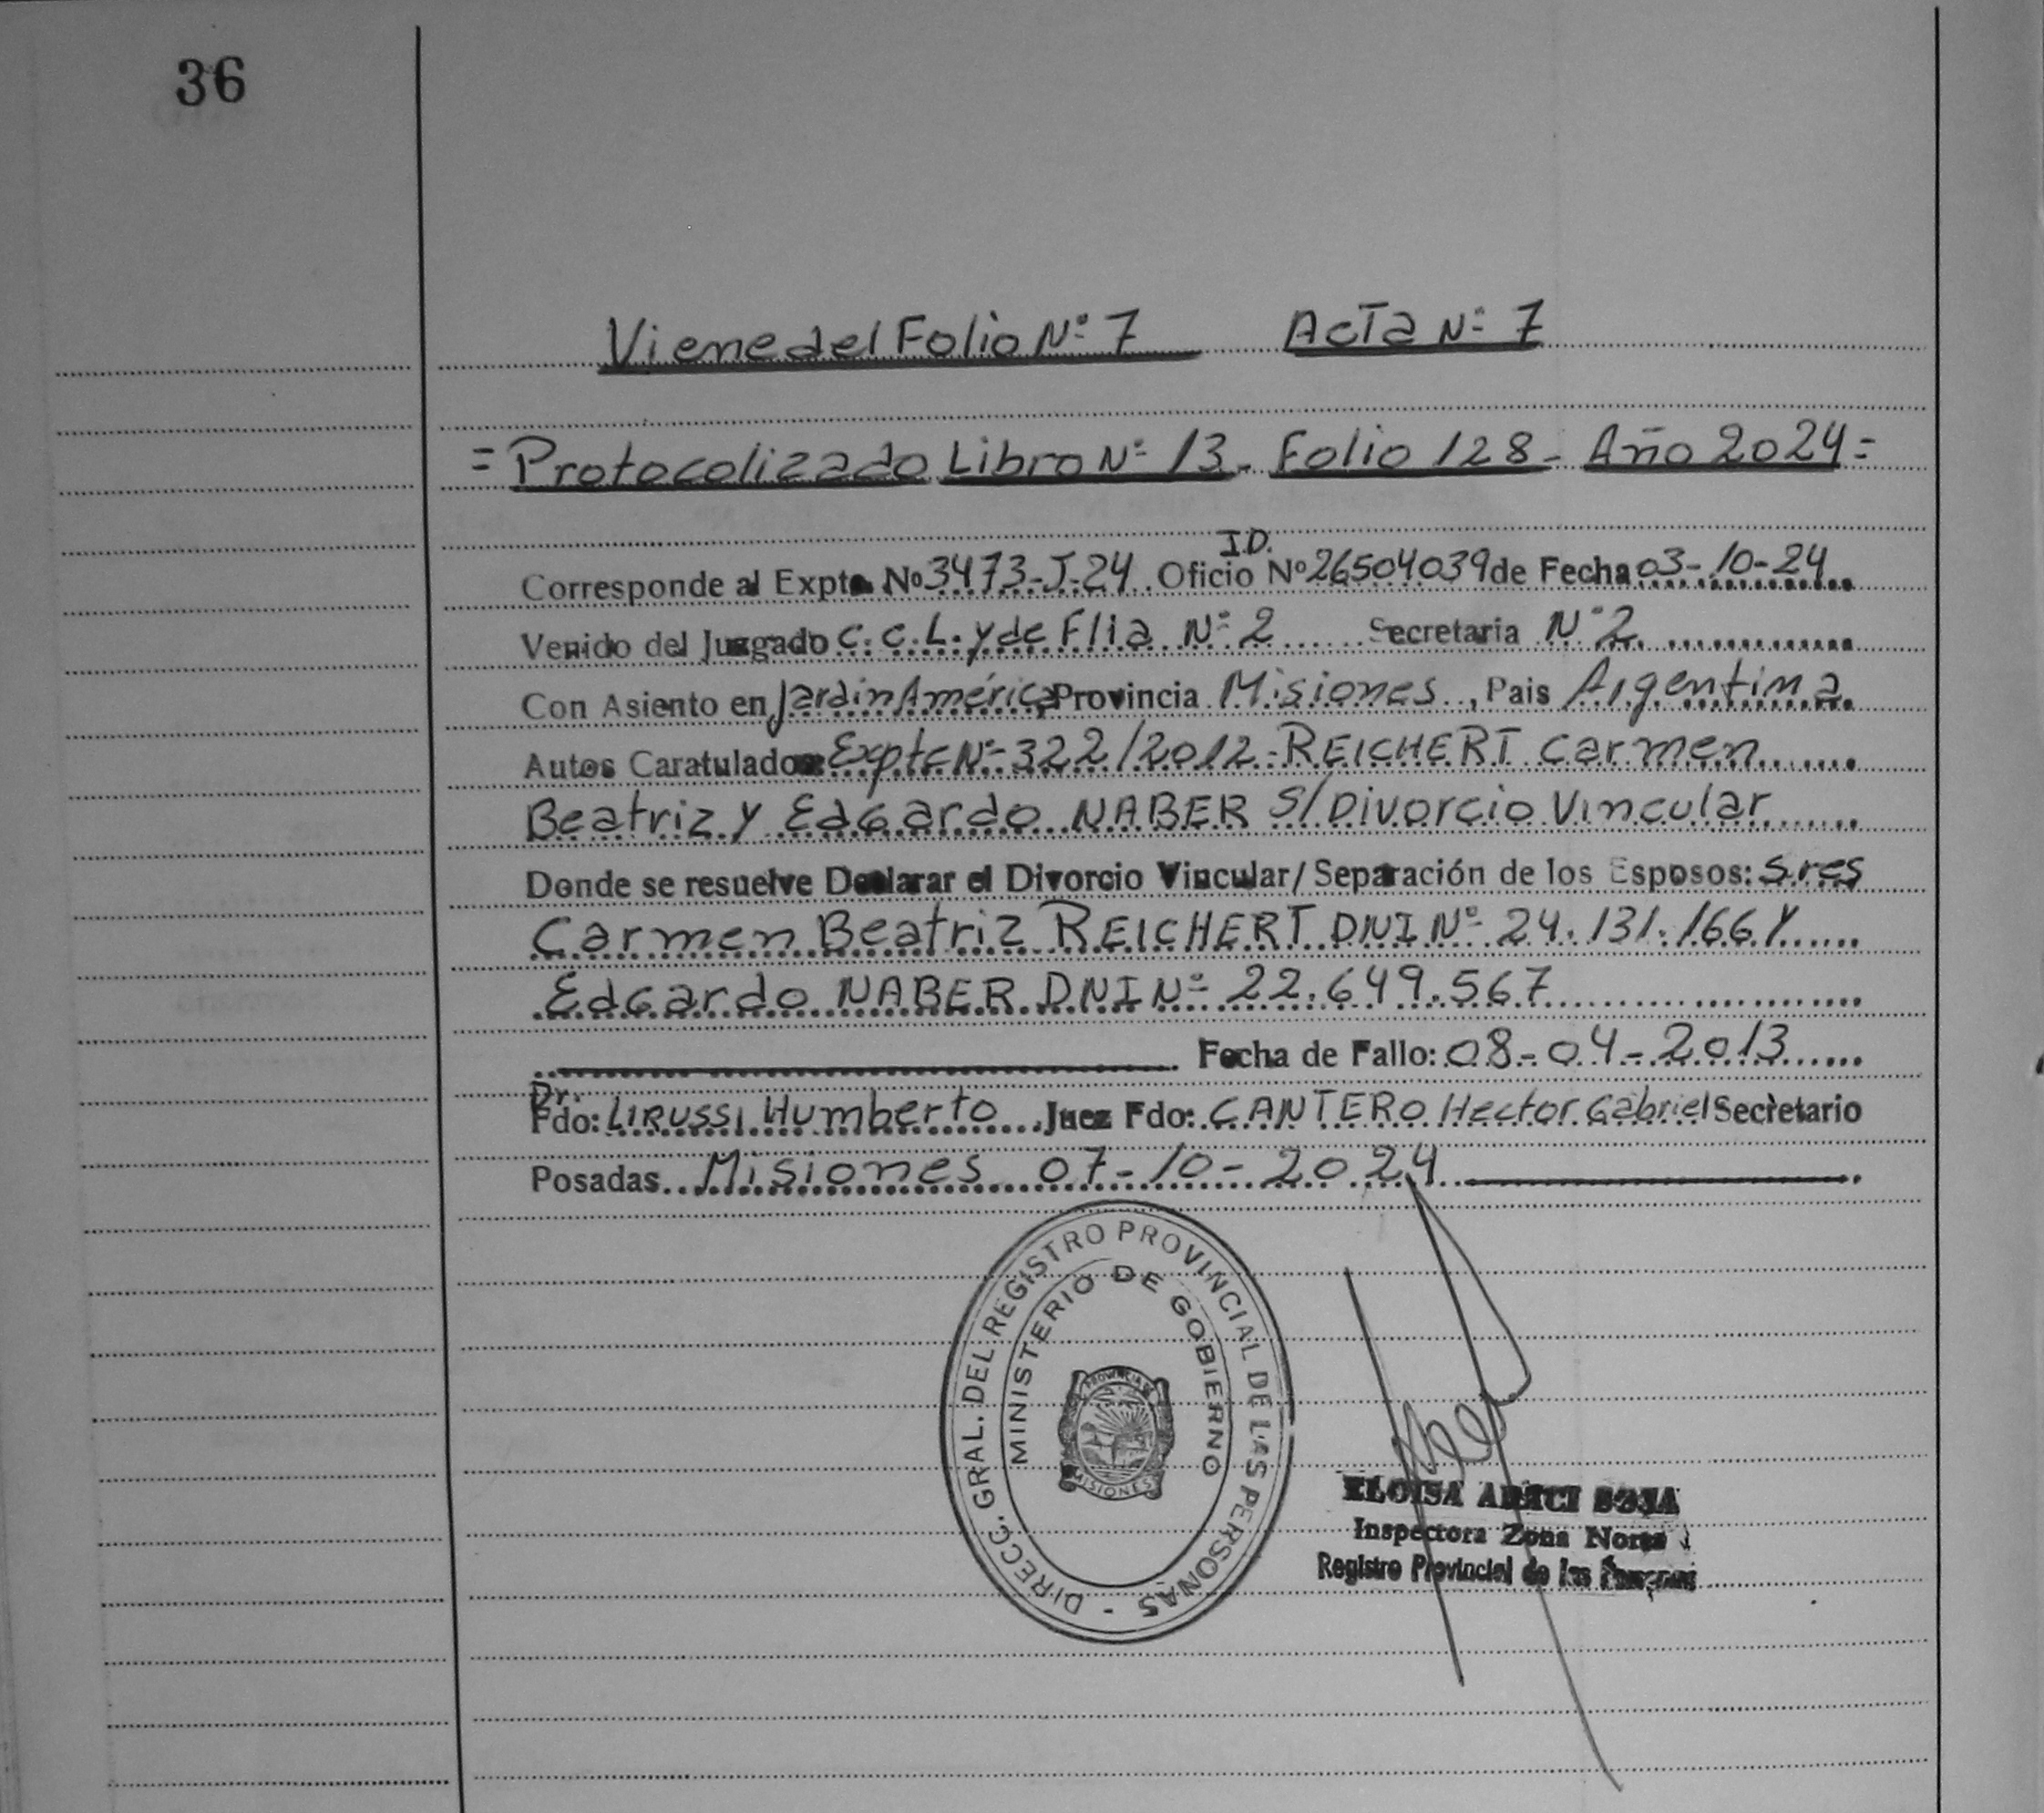 36
Viene del Folio Nº 7 Acta Nº 7
= Protocolizado Libro Nº 13 - Folio 128 - Año 2024 =
I.D.
Corresponde al Expte. No 3473-J-24. Oficio Nº 26504039 de Fecha 03-10-24
Venido del Juzgado C.C.L. y de Flia Nº 2 Secretaria Nº 2
Con Asiento en Jardín América, Provincia Misiones, Pais Argentina
Autos Caratulados: Expte Nº 322/2012 - REICHERT Carmen
Beatriz y Edgardo NABER S/ Divorcio Vincular
Donde se resuelve Declarar el Divorcio Vincular/ Separación de los Esposos: Sres
Carmen Beatriz REICHERT DNI Nº 24.131.166 Y
Edgardo NABER DNI Nº 22.649.567
Fecha de Fallo: 08-04-2013
Dr.
Fdo: LIRUSSI Humberto Juez Fdo: CANTERO Hector Gabriel Secretario
Posadas Misiones 07-10-2024
DIRECC. GRAL. DEL REGISTRO PROVINCIAL DE LAS PERSONAS -
MINISTERIO DE GOBIERNO
PROVINCIA DE
MISIONES
ELOISA
Inspectora Zona Norte
Registro Provincial de las Personas